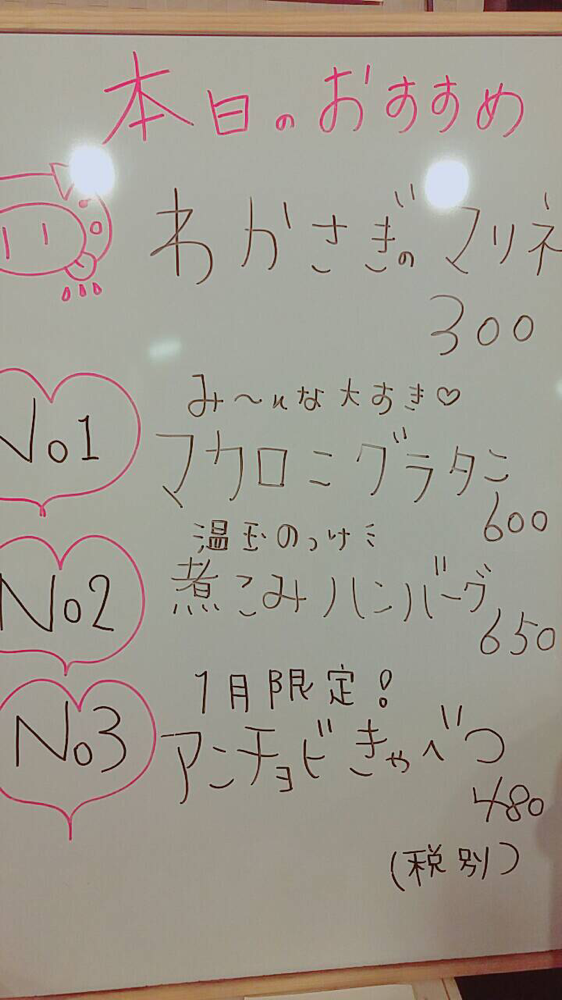 本日のおすすめ
わかさぎのマリネ
300
み〜んな大好き♡
No1
マカロニグラタン
600
温玉のっけミ
No2
煮こみハンバーグ
650
1月限定!
No3
アンチョビきゃべつ
480
(税別)